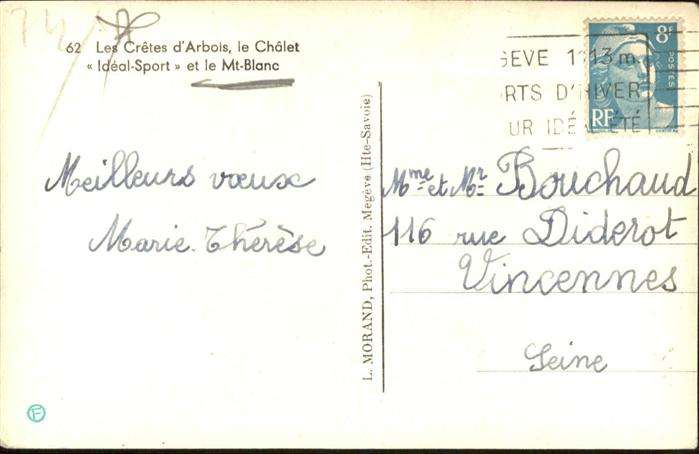 62 Les Crêtes d'Arbois, le Châlet
« Idéal-Sport » et le Mt-Blanc
8F
POSTES
RF
GEVE 1113 m.
RTS D'HIVER
UR IDÉ ÉTÉ
Meilleurs vœux
Marie-Thérèse
L. MORAND, Phot.-Edit. Megève (Hte-Savoie)
Mme et Mr Bouchaud
116 rue Diderot
Vincennes
Seine
F